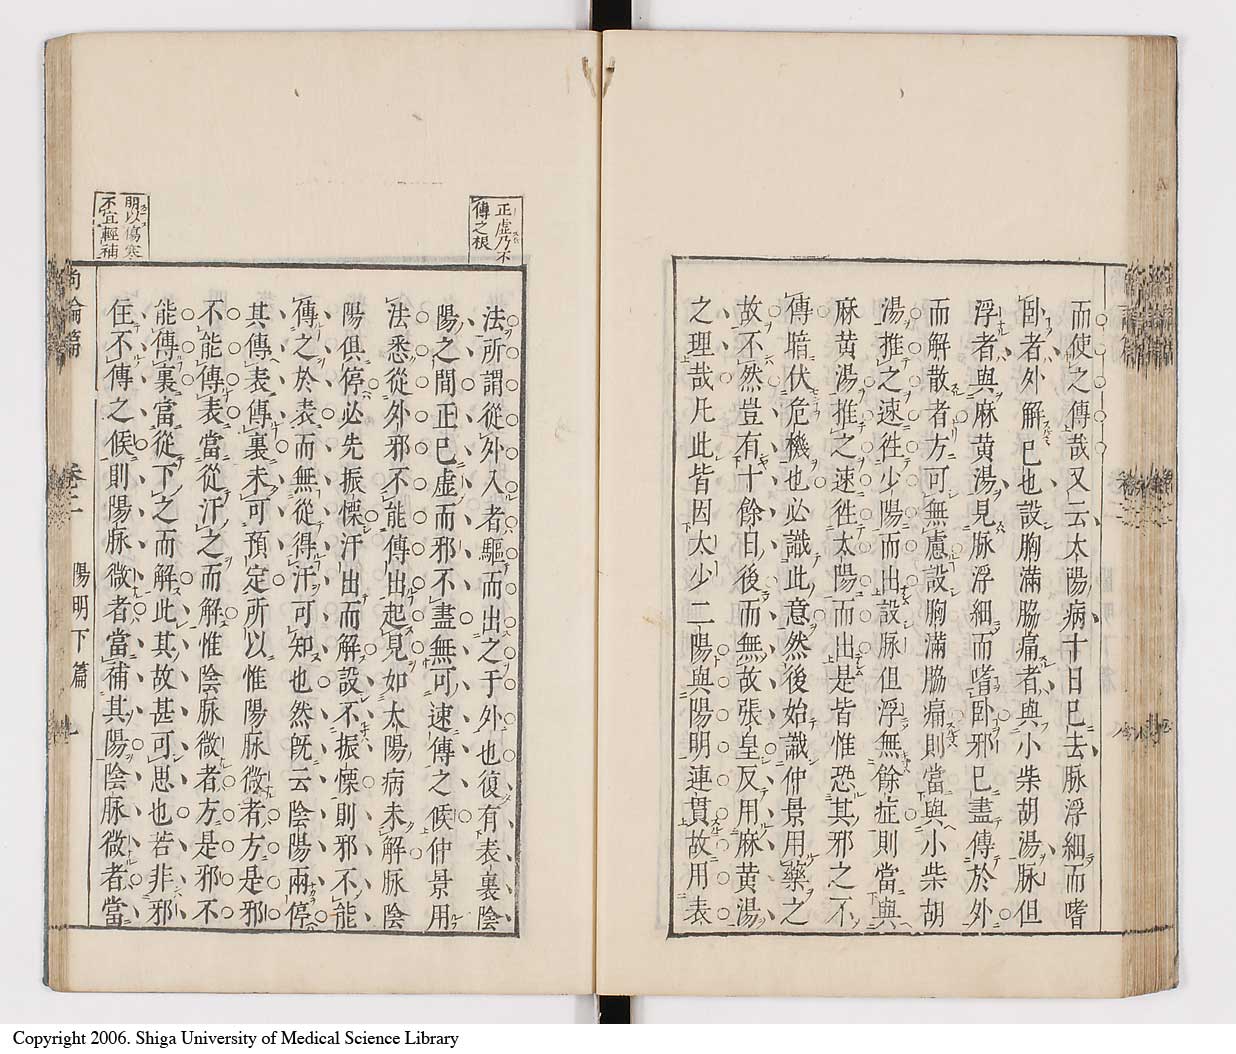 而使之傳哉又云太陽病十日已去脉浮細而嗜
卧者外解已也設胸滿脇痛者與小柴胡湯脉但
浮者與麻黄湯見脉浮細而嗜卧邪已盡傳於外
而解散者方可無慮設胸滿脇痛則當與小柴胡
湯推之速徃少陽而出設脉但浮無餘症則當與
麻黄湯推之速徃太陽而出是皆惟恐其邪之不
傳暗伏危機也必識此意然後始識仲景用藥之
故不然豈有十餘日後而無故張皇反用麻黄湯
之理哉凡此皆因太少二陽與陽明連貫故用表
正虛乃不
傳之根
法所謂從外入者驅而出之于外也復有表裏陰
陽之間正已虛而邪不盡無可速傳之候仲景用
法悉從外邪不能傳出起見如太陽病未解脉陰
陽俱停必先振慄汗出而解設不振慄則邪不能
傳之於表而無從得汗可知也然既云陰陽兩停
其傳表傳裏未可預定所以惟陽脉微者方是邪
不能傳表當從汗之而解惟陰脉微者方是邪不
能傳裏當從下之而解此其故甚可思也若非邪
住不傳之候則陽脉微者當補其陽陰脉微者當
明以傷寒
不宜輕補
尚論篇 卷二 陽明下篇 九
Copyright 2006. Shiga University of Medical Science Library